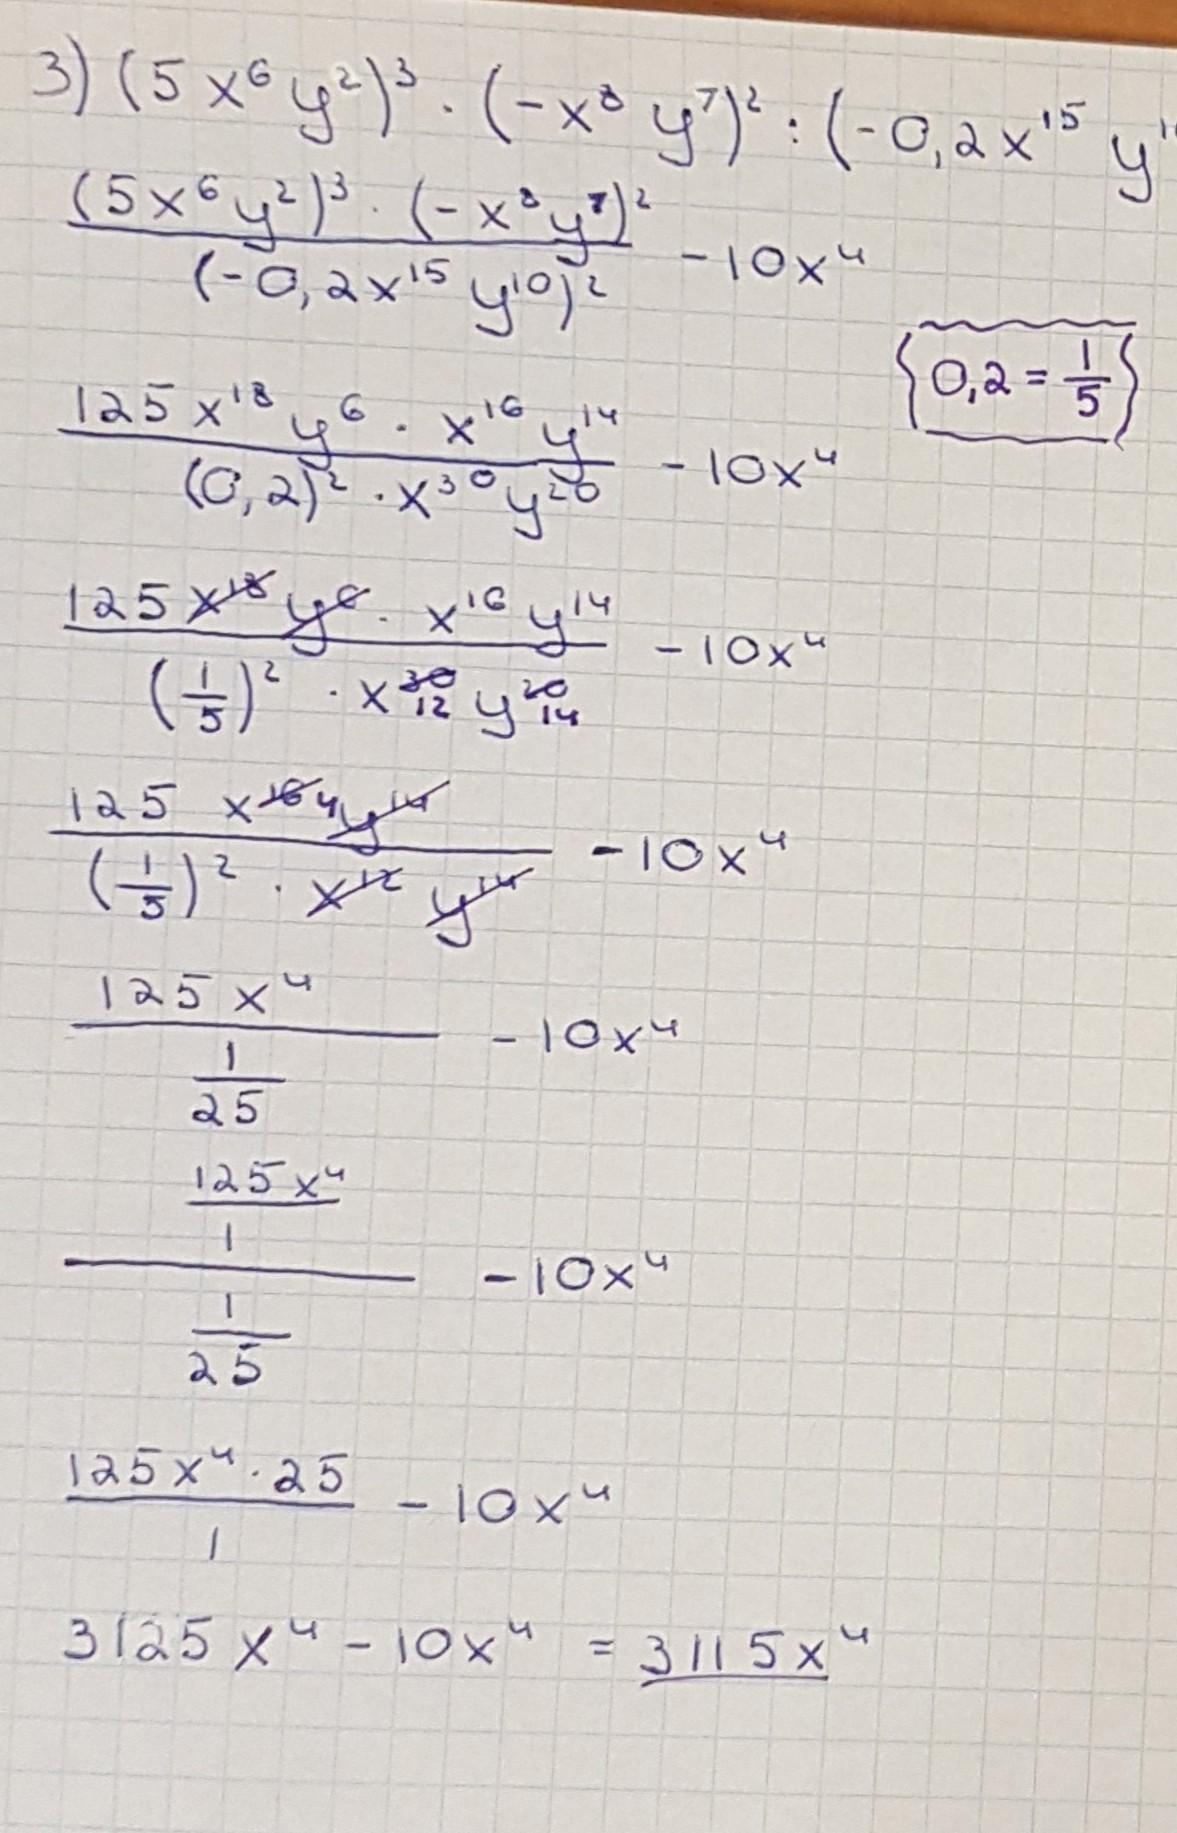 3) (5x⁶y²)³ · (-x⁸y⁷)² : (-0,2x¹⁵y¹
(5x⁶y²)³ · (-x⁸y⁷)² / (-0,2x¹⁵y¹⁰)² - 10x⁴
{0,2 = 1/5}
125x¹⁸y⁶ · x¹⁶y¹⁴ / (0,2)² · x³⁰y²⁰ - 10x⁴
125x¹⁸y⁶ · x¹⁶y¹⁴ / (1/5)² · x³⁰ 12 y²⁰ 14 - 10x⁴
125 x¹⁶ 4 y¹⁴ / (1/5)² · x¹² y¹⁴ - 10x⁴
125x⁴ / 1/25 - 10x⁴
125x⁴/1 / 1/25 - 10x⁴
125x⁴ · 25 / 1 - 10x⁴
3125x⁴ - 10x⁴ = 3115x⁴